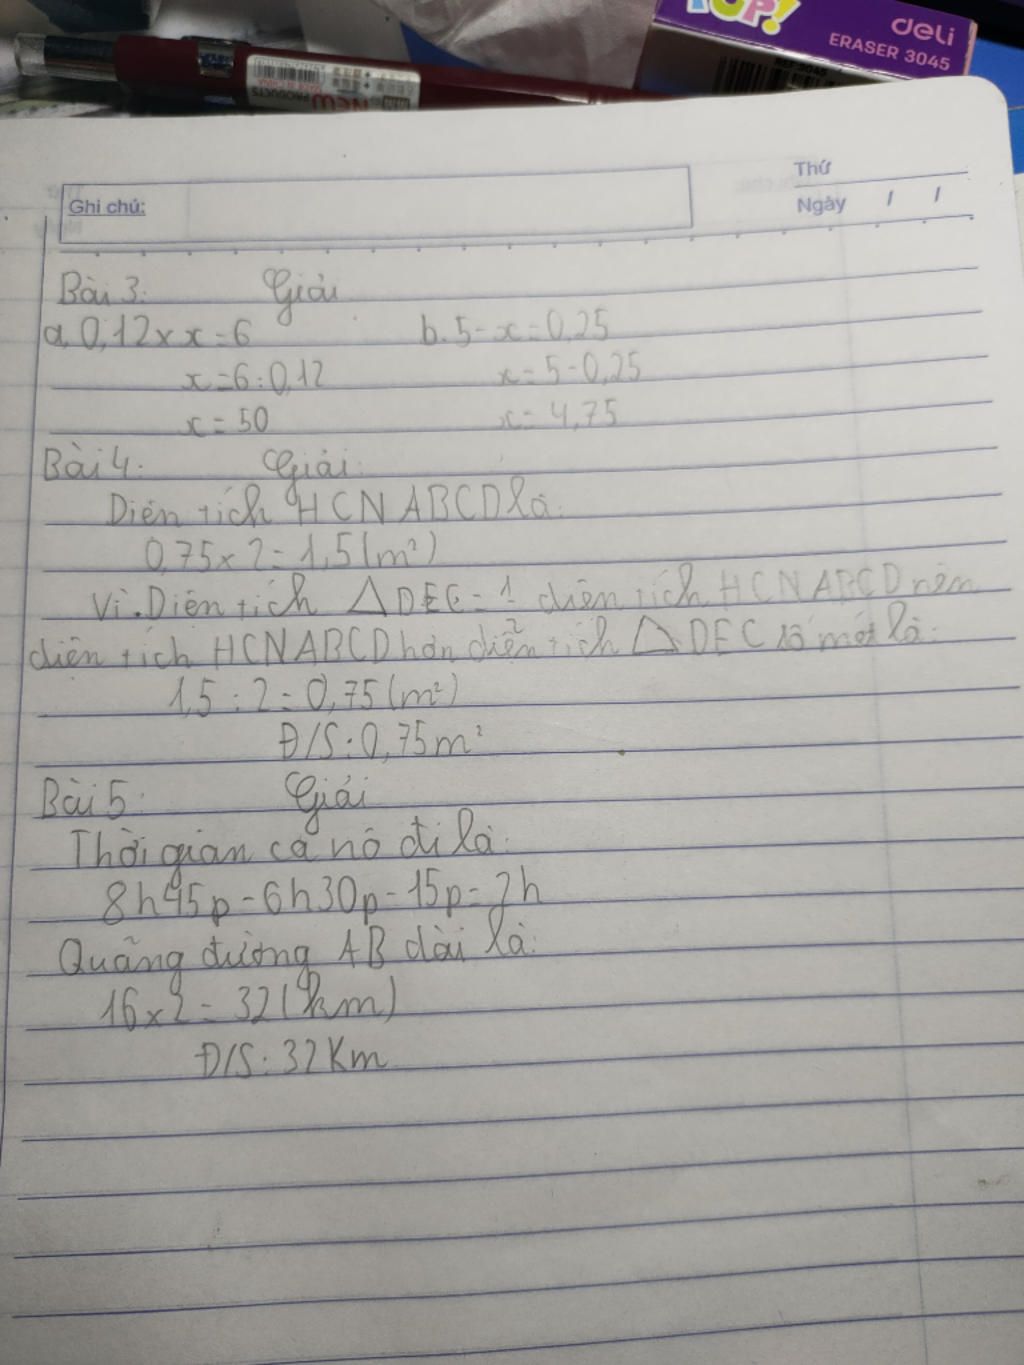 TOP!
deli
ERASER 3045
PRODUCTS
NEW
Thứ
Ghi chú:
Ngày / /
Bài 3: Giải
a, 0,12 x x = 6 b. 5 - x = 0,25
x = 6 : 0,12 x = 5 - 0,25
x = 50 x = 4,75
Bài 4: Giải:
Diện tích HCN ABCD là:
0,75 x 2 = 1,5 (m²)
Vì Diện tích △ DEC = 1/2 diện tích HCN ABCD nên
diện tích HCN ABCD hơn diện tích △ DEC là:
1,5 : 2 = 0,75 (m²)
Đ/S: 0,75 m²
Bài 5: Giải
Thời gian ca nô đi là:
8h45p - 6h30p - 15p = 2h
Quãng đường AB dài là:
16 x 2 = 32 (km)
Đ/S: 32 Km